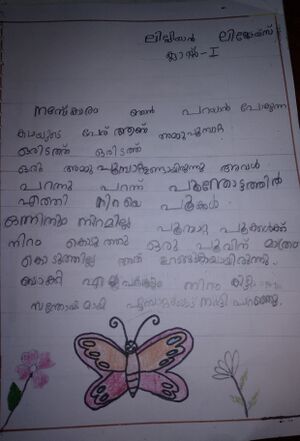 ലിയാൻ ലിജോയ്സ്
ക്ലാസ്സ്-I
നമസ്കാരം ഞാൻ പറയാൻ പോകുന്ന
കഥയുടെ പേര് ആണ് അമ്മുപൂമ്പാറ്റ
ഒരിടത്ത് ഒരിടത്ത്
ഒരു അമ്മുപൂമ്പാറ്റയുണ്ടായിരുന്നു അവൾ
പറന്നു പറന്ന് പൂന്തോട്ടത്തിൽ
എത്തി നിറയെ പൂക്കൾ
ഒന്നിനും നിറമില്ല പൂമ്പാറ്റ പൂക്കൾക്ക്
നിറം കൊടുത്തു ഒരു പൂവിന് മാത്രം
കൊടുത്തില്ല അത് ഉറങ്ങുകയായിരുന്നു.
ബാക്കി എല്ലാവർക്കും നിറം കിട്ടി
സന്തോഷമായി പൂമ്പാറ്റയോട് നന്ദി പറഞ്ഞു.